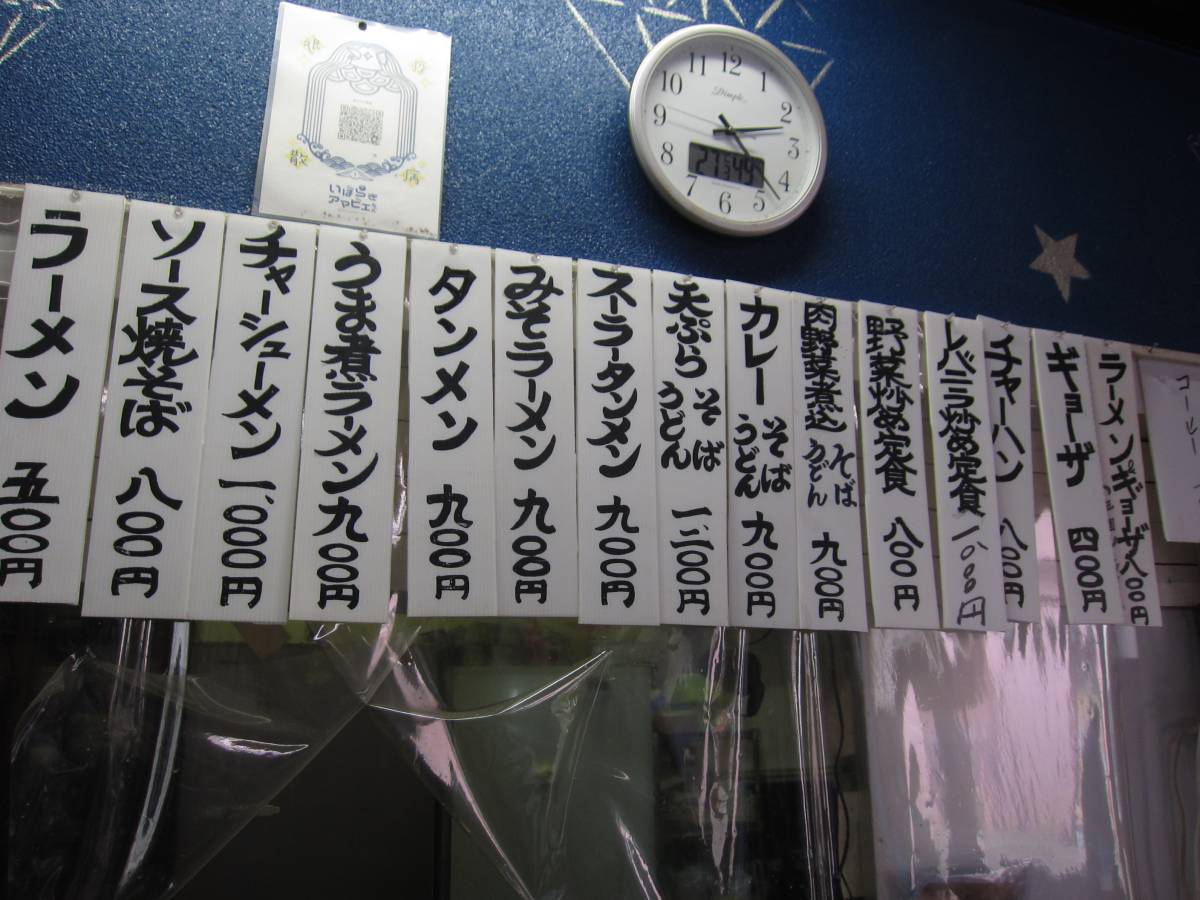 疫
病
散
いばらき
アマビエちゃん
Dimple
11 12 1
10 2
9 3
8 4
7 6 5
ラーメン 五〇〇円
ソース焼そば 八〇〇円
チャーシューメン 一、〇〇〇円
うま煮ラーメン 九〇〇円
タンメン 九〇〇円
みそラーメン 九〇〇円
スーラータンメン 九〇〇円
天ぷら そば うどん 一、二〇〇円
カレー そば うどん 九〇〇円
肉野菜煮込 そば うどん 九〇〇円
野菜炒め定食 八〇〇円
レバニラ炒め定食 一、〇〇〇円
チャーハン 八〇〇円
ギョーザ 四〇〇円
ラーメン ギョーザ 八〇〇円